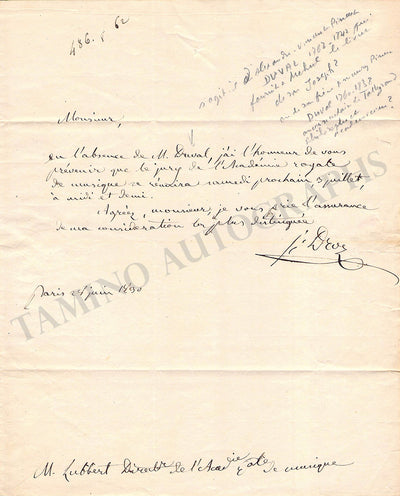 486. 62
s'agit-il d'Alexandre Vincent Pineux
DUVAL 1767-1842 qui
de son Joseph?
ou de son frère Amaury Pineu
Duval 1760-183?
Monsieur,
En l'absence de M. Duval, j'ai l'honneur de vous
prévenir que le jury de l'Académie royale
de musique se réunira samedi prochain 3 juillet
à midi et demi.
Agréez, monsieur, je vous prie l'assurance
de ma considération la plus distinguée
Paris juin 1830
M. Lubbert Directr de l'Acadie royale de musique
TAMINO AUTOGRAPHS